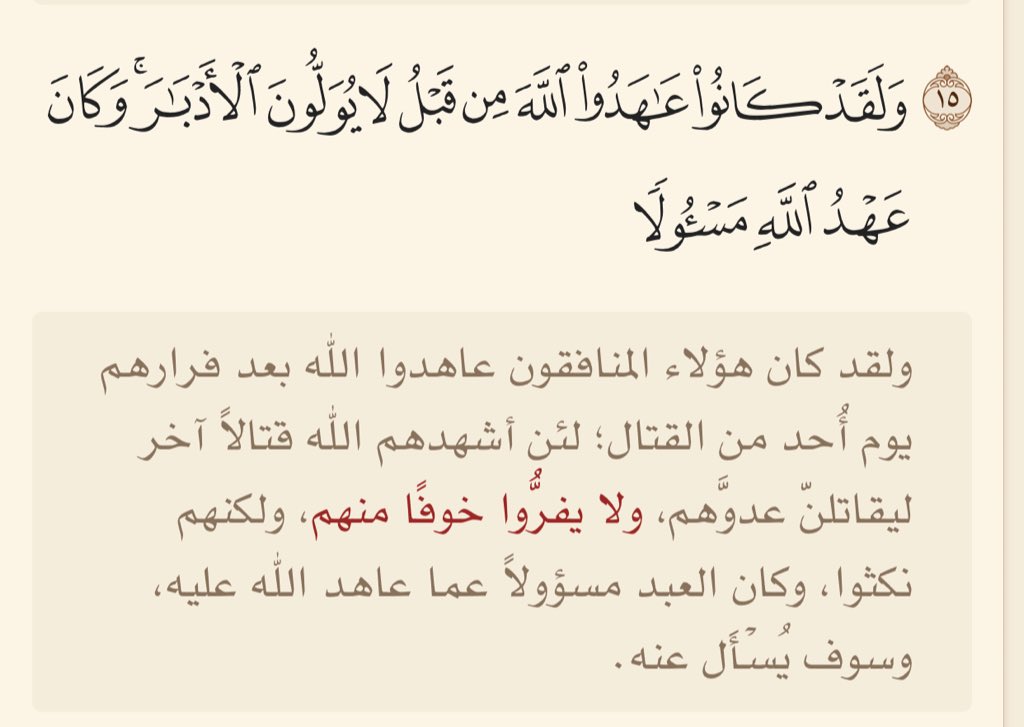 ١٥ وَلَقَدْ كَانُوا۟ عَـٰهَدُوا۟ ٱللَّهَ مِن قَبْلُ لَا يُوَلُّونَ ٱلْأَدْبَـٰرَ ۚ وَكَانَ
عَهْدُ ٱللَّهِ مَسْـُٔولًا
ولقد كان هؤلاء المنافقون عاهدوا الله بعد فرارهم
يوم أُحد من القتال؛ لئن أشهدهم الله قتالاً آخر
ليقاتلنّ عدوَّهم، ولا يفرُّوا خوفًا منهم، ولكنهم
نكثوا، وكان العبد مسؤولاً عما عاهد الله عليه،
وسوف يُسْأَل عنه.